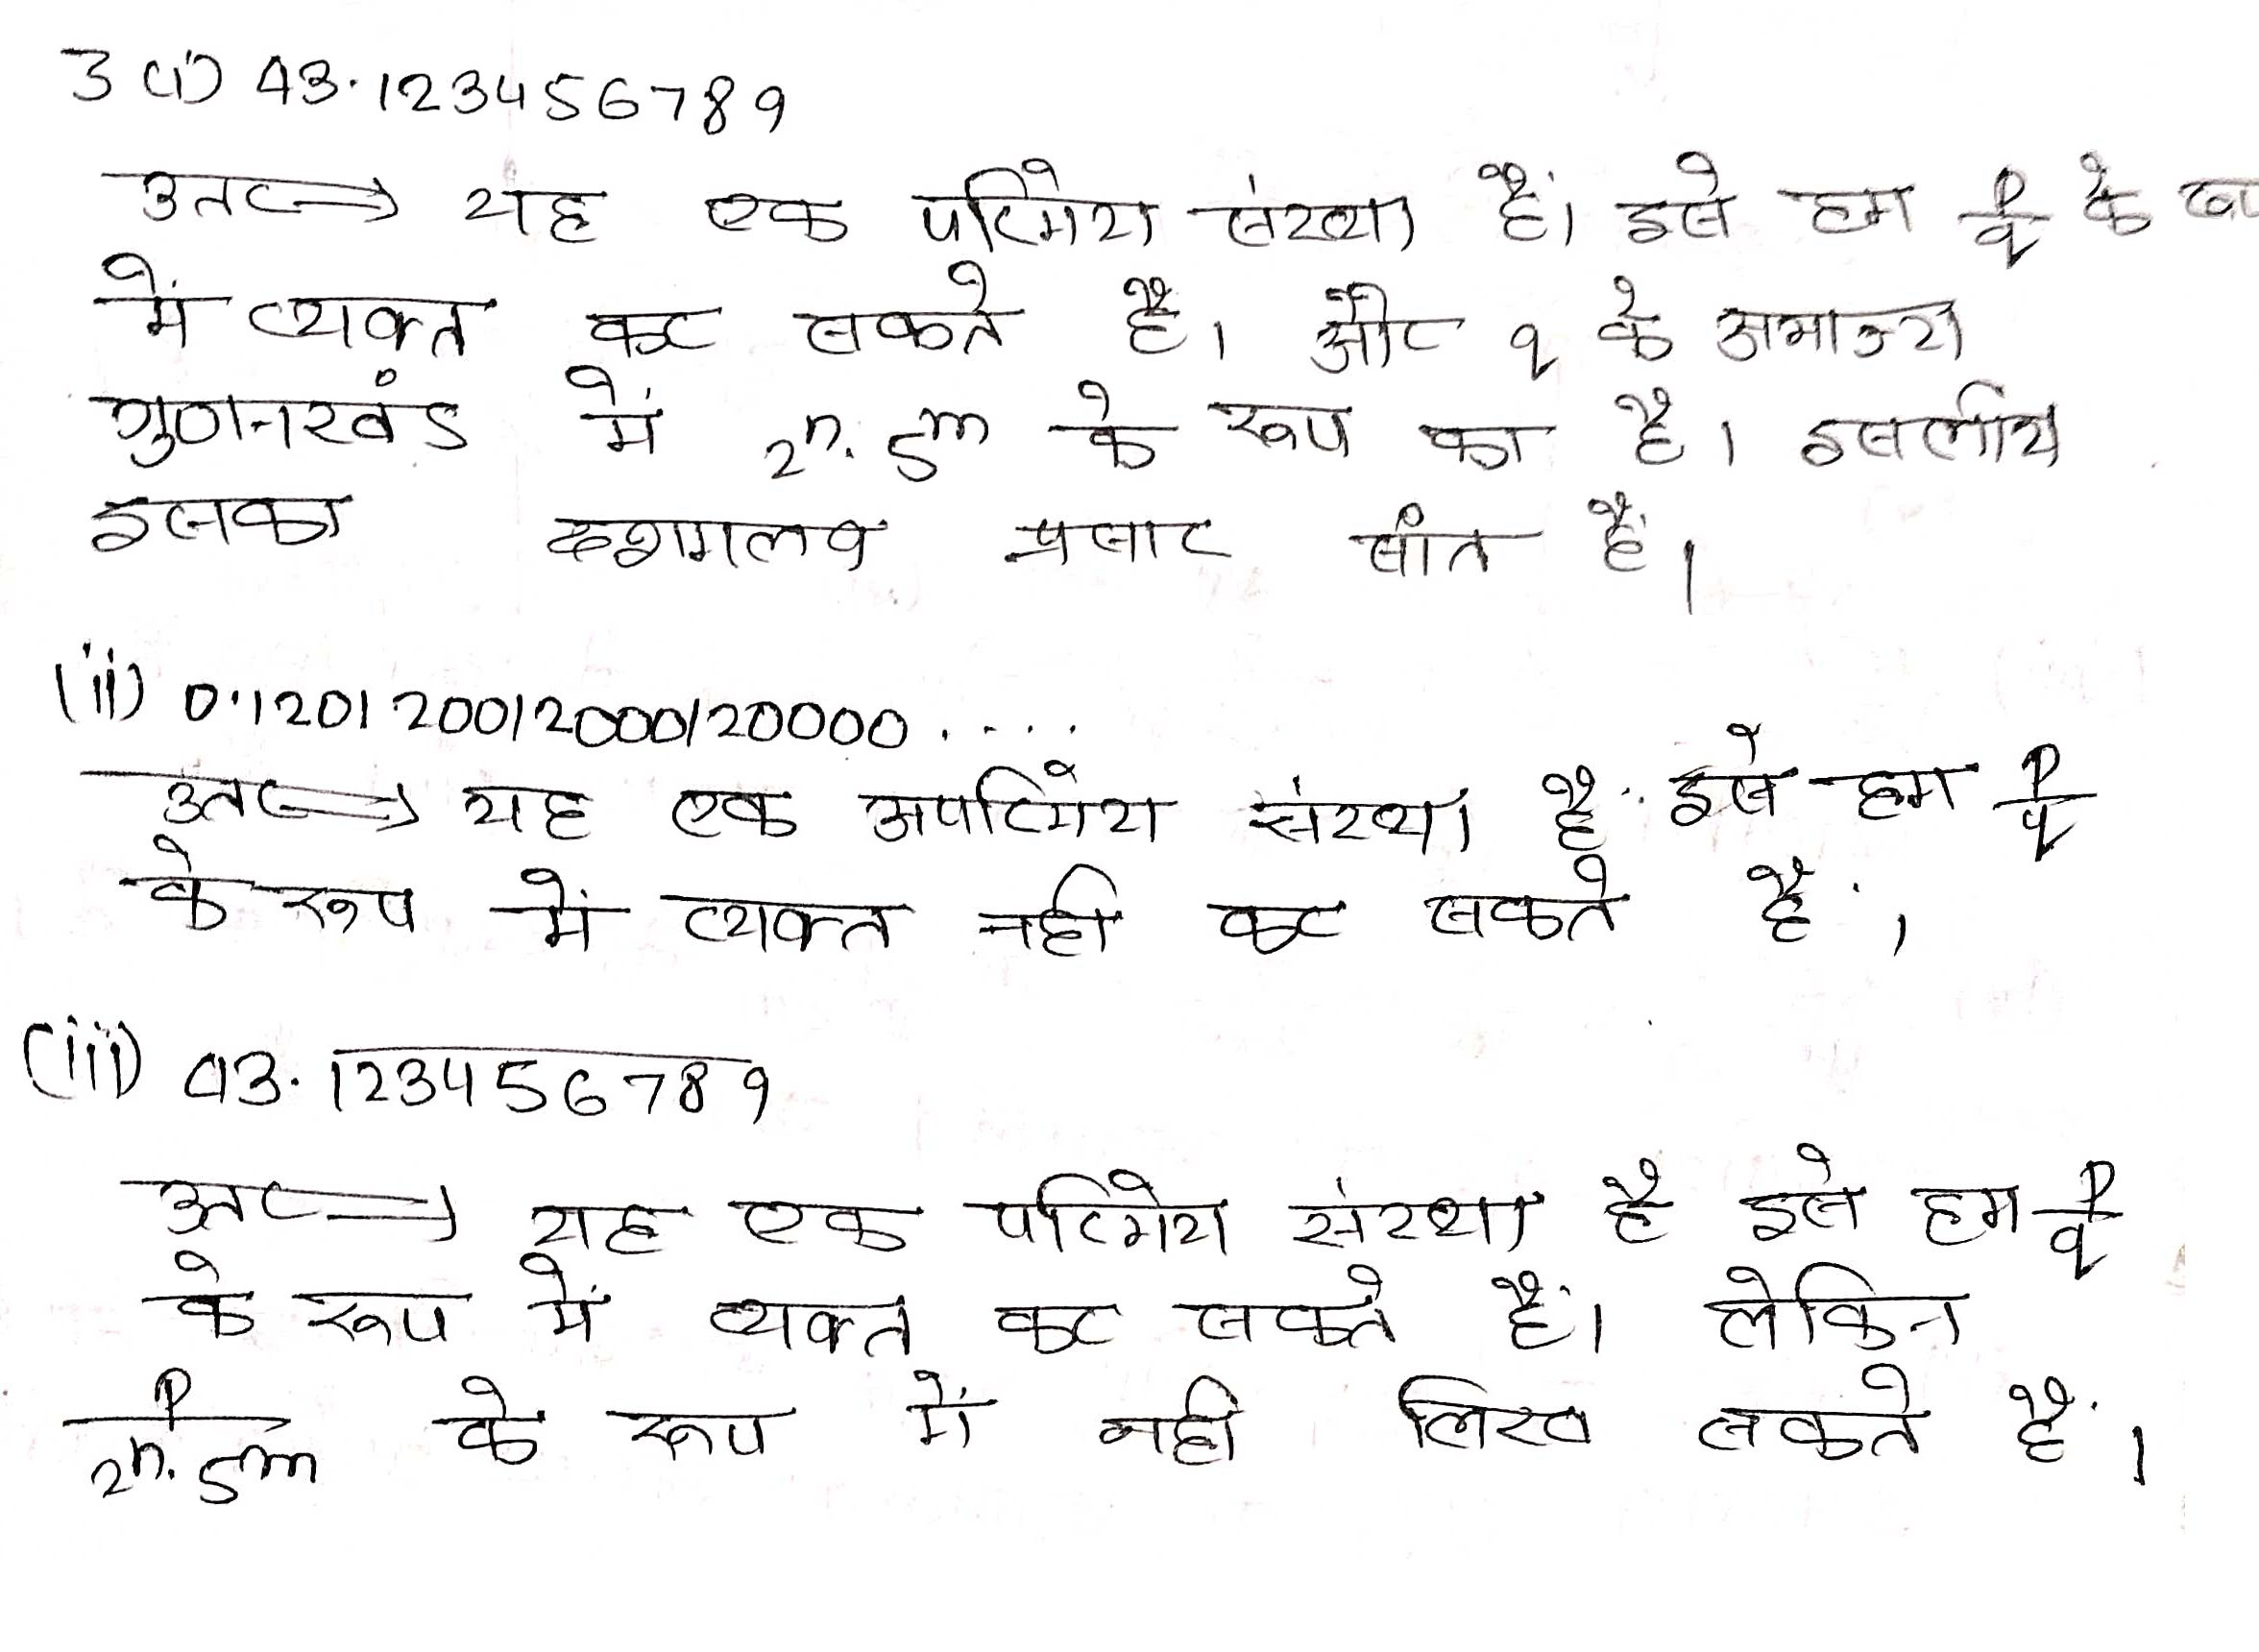 3 (i) 43.123456789
उतर⟶ यह एक परिमेय संख्या हैं। इसे हम p/q के रूप
में व्यक्त कर सकते हैं। और q के अभाज्य
गुणनखंड में 2ⁿ.5ᵐ के रूप का है। इसलीय
इसका दशमलव प्रसार सांत हैं।
(ii) 0.120120012000120000.....
उतर⟶ यह एक अपरिमेय संख्या हैं इसे हम p/q
के रूप में व्यक्त नही कर सकते हैं।
(iii) 43.1̅2̅3̅4̅5̅6̅7̅8̅9̅
उतर⟶ यह एक परिमेय संख्या है इसे हम p/q
के रूप में व्यक्त कर सकते हैं। लेकिन
p/2ⁿ.5ᵐ के रूप में नही लिख सकते हैं।